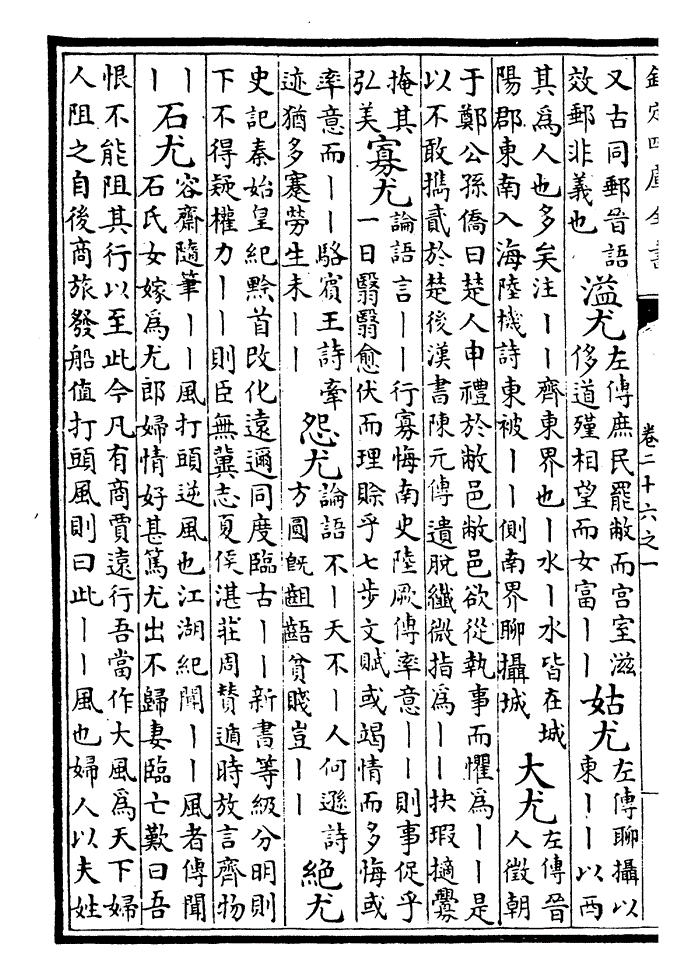 欽定四庫全書
卷二十六之一
又古同郵晉語
效郵非義也
溢尤
左傳庶民罷敝而宮室滋
侈道殣相望而女富丨丨
姑尤
左傳聊攝以
東丨丨以西
其為人也多矣注丨丨齊東界也丨水丨水皆在城
陽郡東南入海陸機詩東被丨丨側南界聊攝城
大尤
左傳晉
人徵朝
于鄭公孫僑曰楚人申禮於敝邑敝邑欲從執事而懼為丨丨是
以不敢攜貳於楚後漢書陳元傳遺脫纖微指為丨丨抉瑕擿釁
掩其
弘美
寡尤
論語言丨丨行寡悔南史陸厥傳率意丨丨則事促乎
一日翳翳愈伏而理賒乎七步文賦或竭情而多悔或
率意而丨丨駱賓王詩牽
迹猶多蹇勞生未丨丨
怨尤
論語不丨天不丨人何遜詩
方圓旣齟齬貧賤豈丨丨
絕尤
史記秦始皇紀黔首改化遠邇同度臨古丨丨新書等級分明則
下不得疑權力丨丨則臣無冀志夏侯湛莊周贊遁時放言齊物
丨
丨
石尤
容齋隨筆丨丨風打頭逆風也江湖紀聞丨丨風者傳聞
石氏女嫁為尤郎婦情好甚篤尤出不歸妻臨亡歎曰吾
恨不能阻其行以至此今凡有商賈遠行吾當作大風為天下婦
人阻之自後商旅發船值打頭風則曰此丨丨風也婦人以夫姓